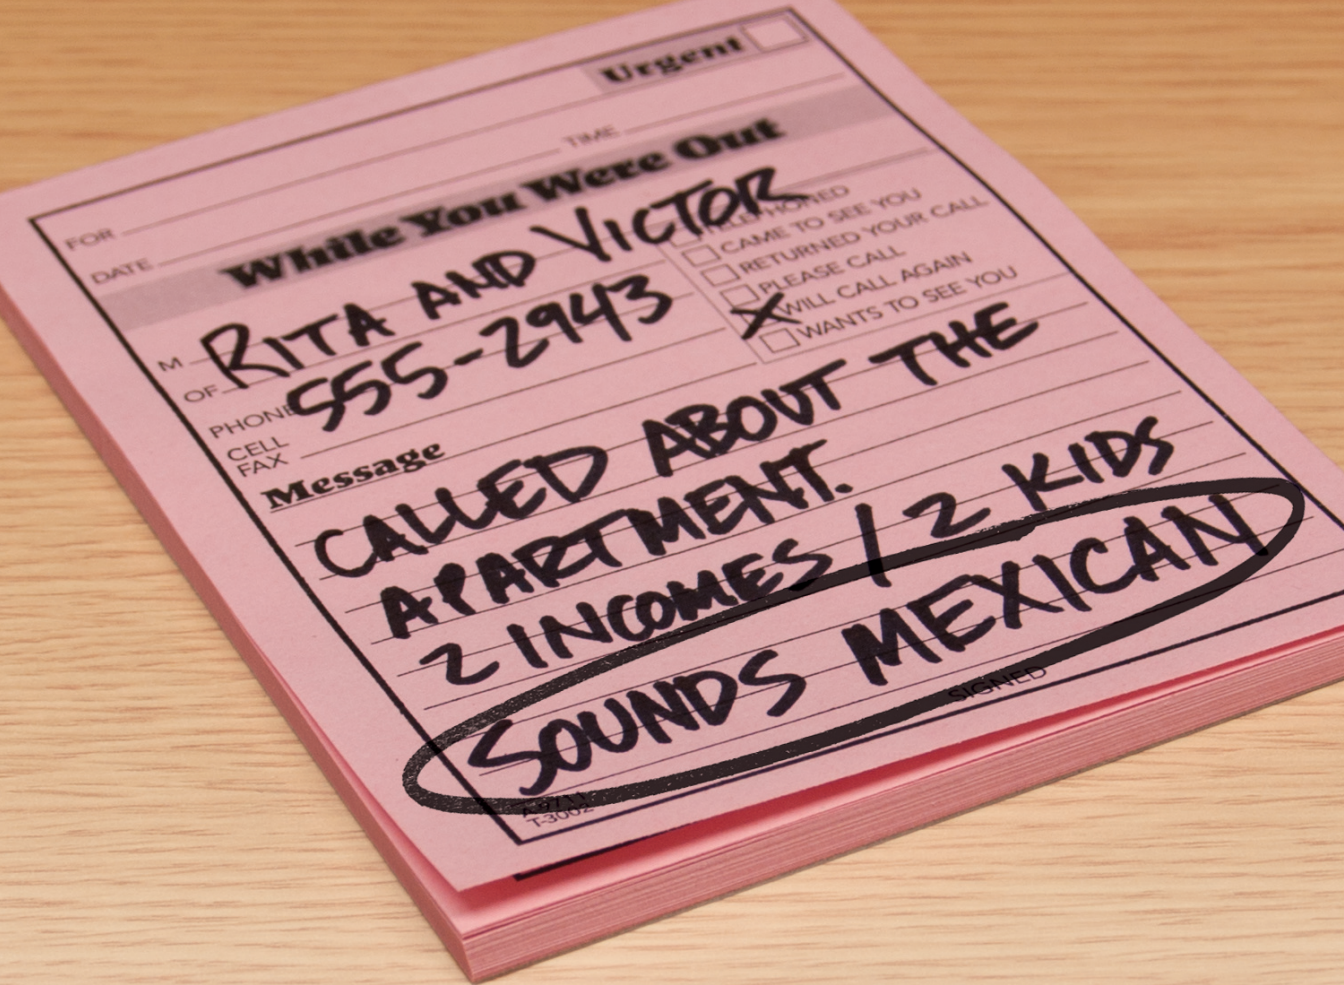 Urgent
FOR
DATE TIME
While You Were Out
M RITA AND VICTOR
OF
PHONE 555-2943
CELL
FAX
TELEPHONED
CAME TO SEE YOU
RETURNED YOUR CALL
PLEASE CALL
X WILL CALL AGAIN
WANTS TO SEE YOU
Message
CALLED ABOUT THE
APARTMENT.
2 INCOMES / 2 KIDS
SOUNDS MEXICAN
SIGNED
T-3002